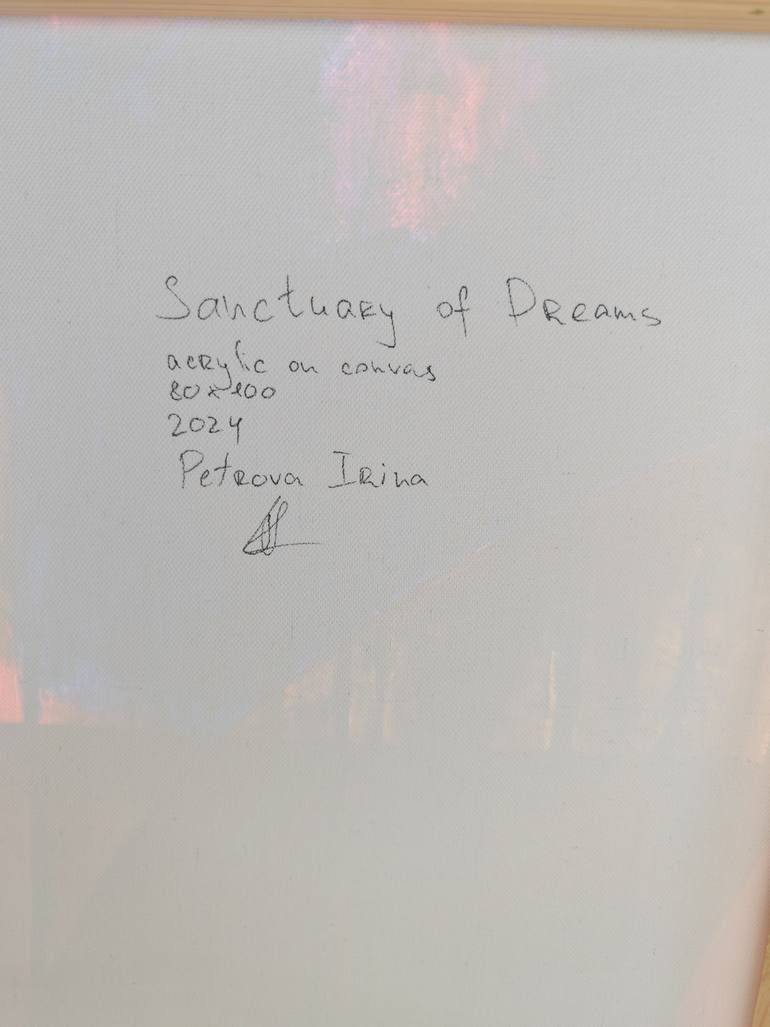 Sanctuary of Dreams
acrylic on canvas
80x100
2024
Petrova Irina